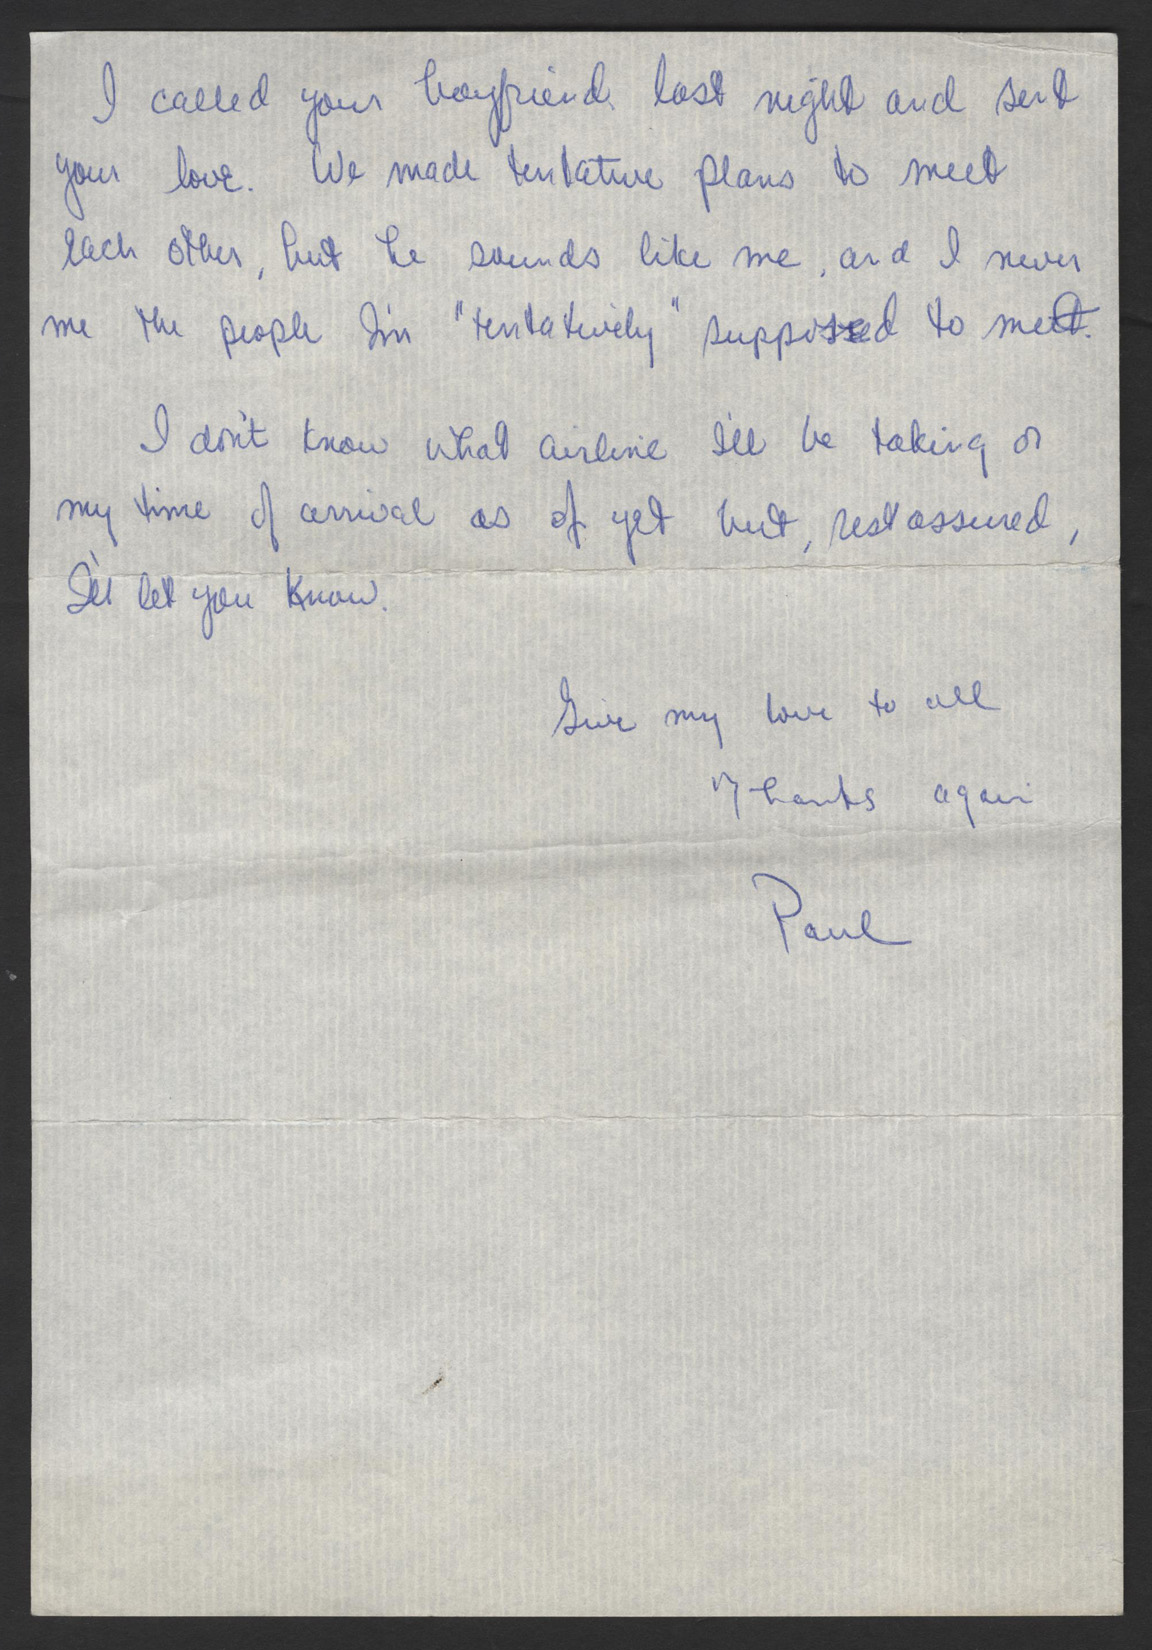 I called your boyfriend last night and sent
your love. We made tentative plans to meet
each other, but he sounds like me, and I never
me the people I'm "tentatively" supposed to meet.
I don't know what airline I'll be taking or
my time of arrival as of yet but, rest assured,
I'll let you know.
Give my love to all
Thanks again
Paul